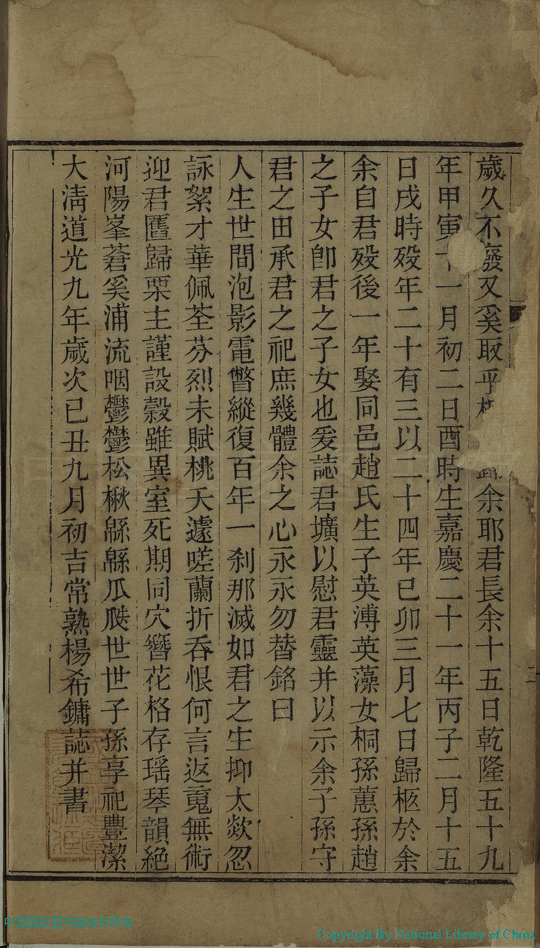 歲久不廢又奚取乎 余耶君長余十五日乾隆五十九
年甲寅十一月初二日酉時生嘉慶二十一年丙子二月十五
日戌時歿年二十有三以二十四年己卯三月七日歸柩於余
余自君歿後一年娶同邑趙氏生子英溥英藻女桐孫蕙孫趙
之子女卽君之子女也爰誌君壙以慰君靈并以示余子孫守
君之田承君之祀庶幾體余之心永永勿替銘曰
人生世間泡影電瞥縱復百年一刹那滅如君之生抑太歘忽
詠絮才華佩荃芬烈未賦桃夭遽嗟蘭折吞恨何言返䰟無術
迎君匶歸栗主謹設榖雖異室死期同穴簪花格存瑶琴韻絶
河陽峯蒼奚浦流咽鬱鬱松楸緜緜瓜瓞世世子孫享祀豐潔
大淸道光九年歲次己丑九月初吉常熟楊希鏞誌并書
Copyright By National Library of China